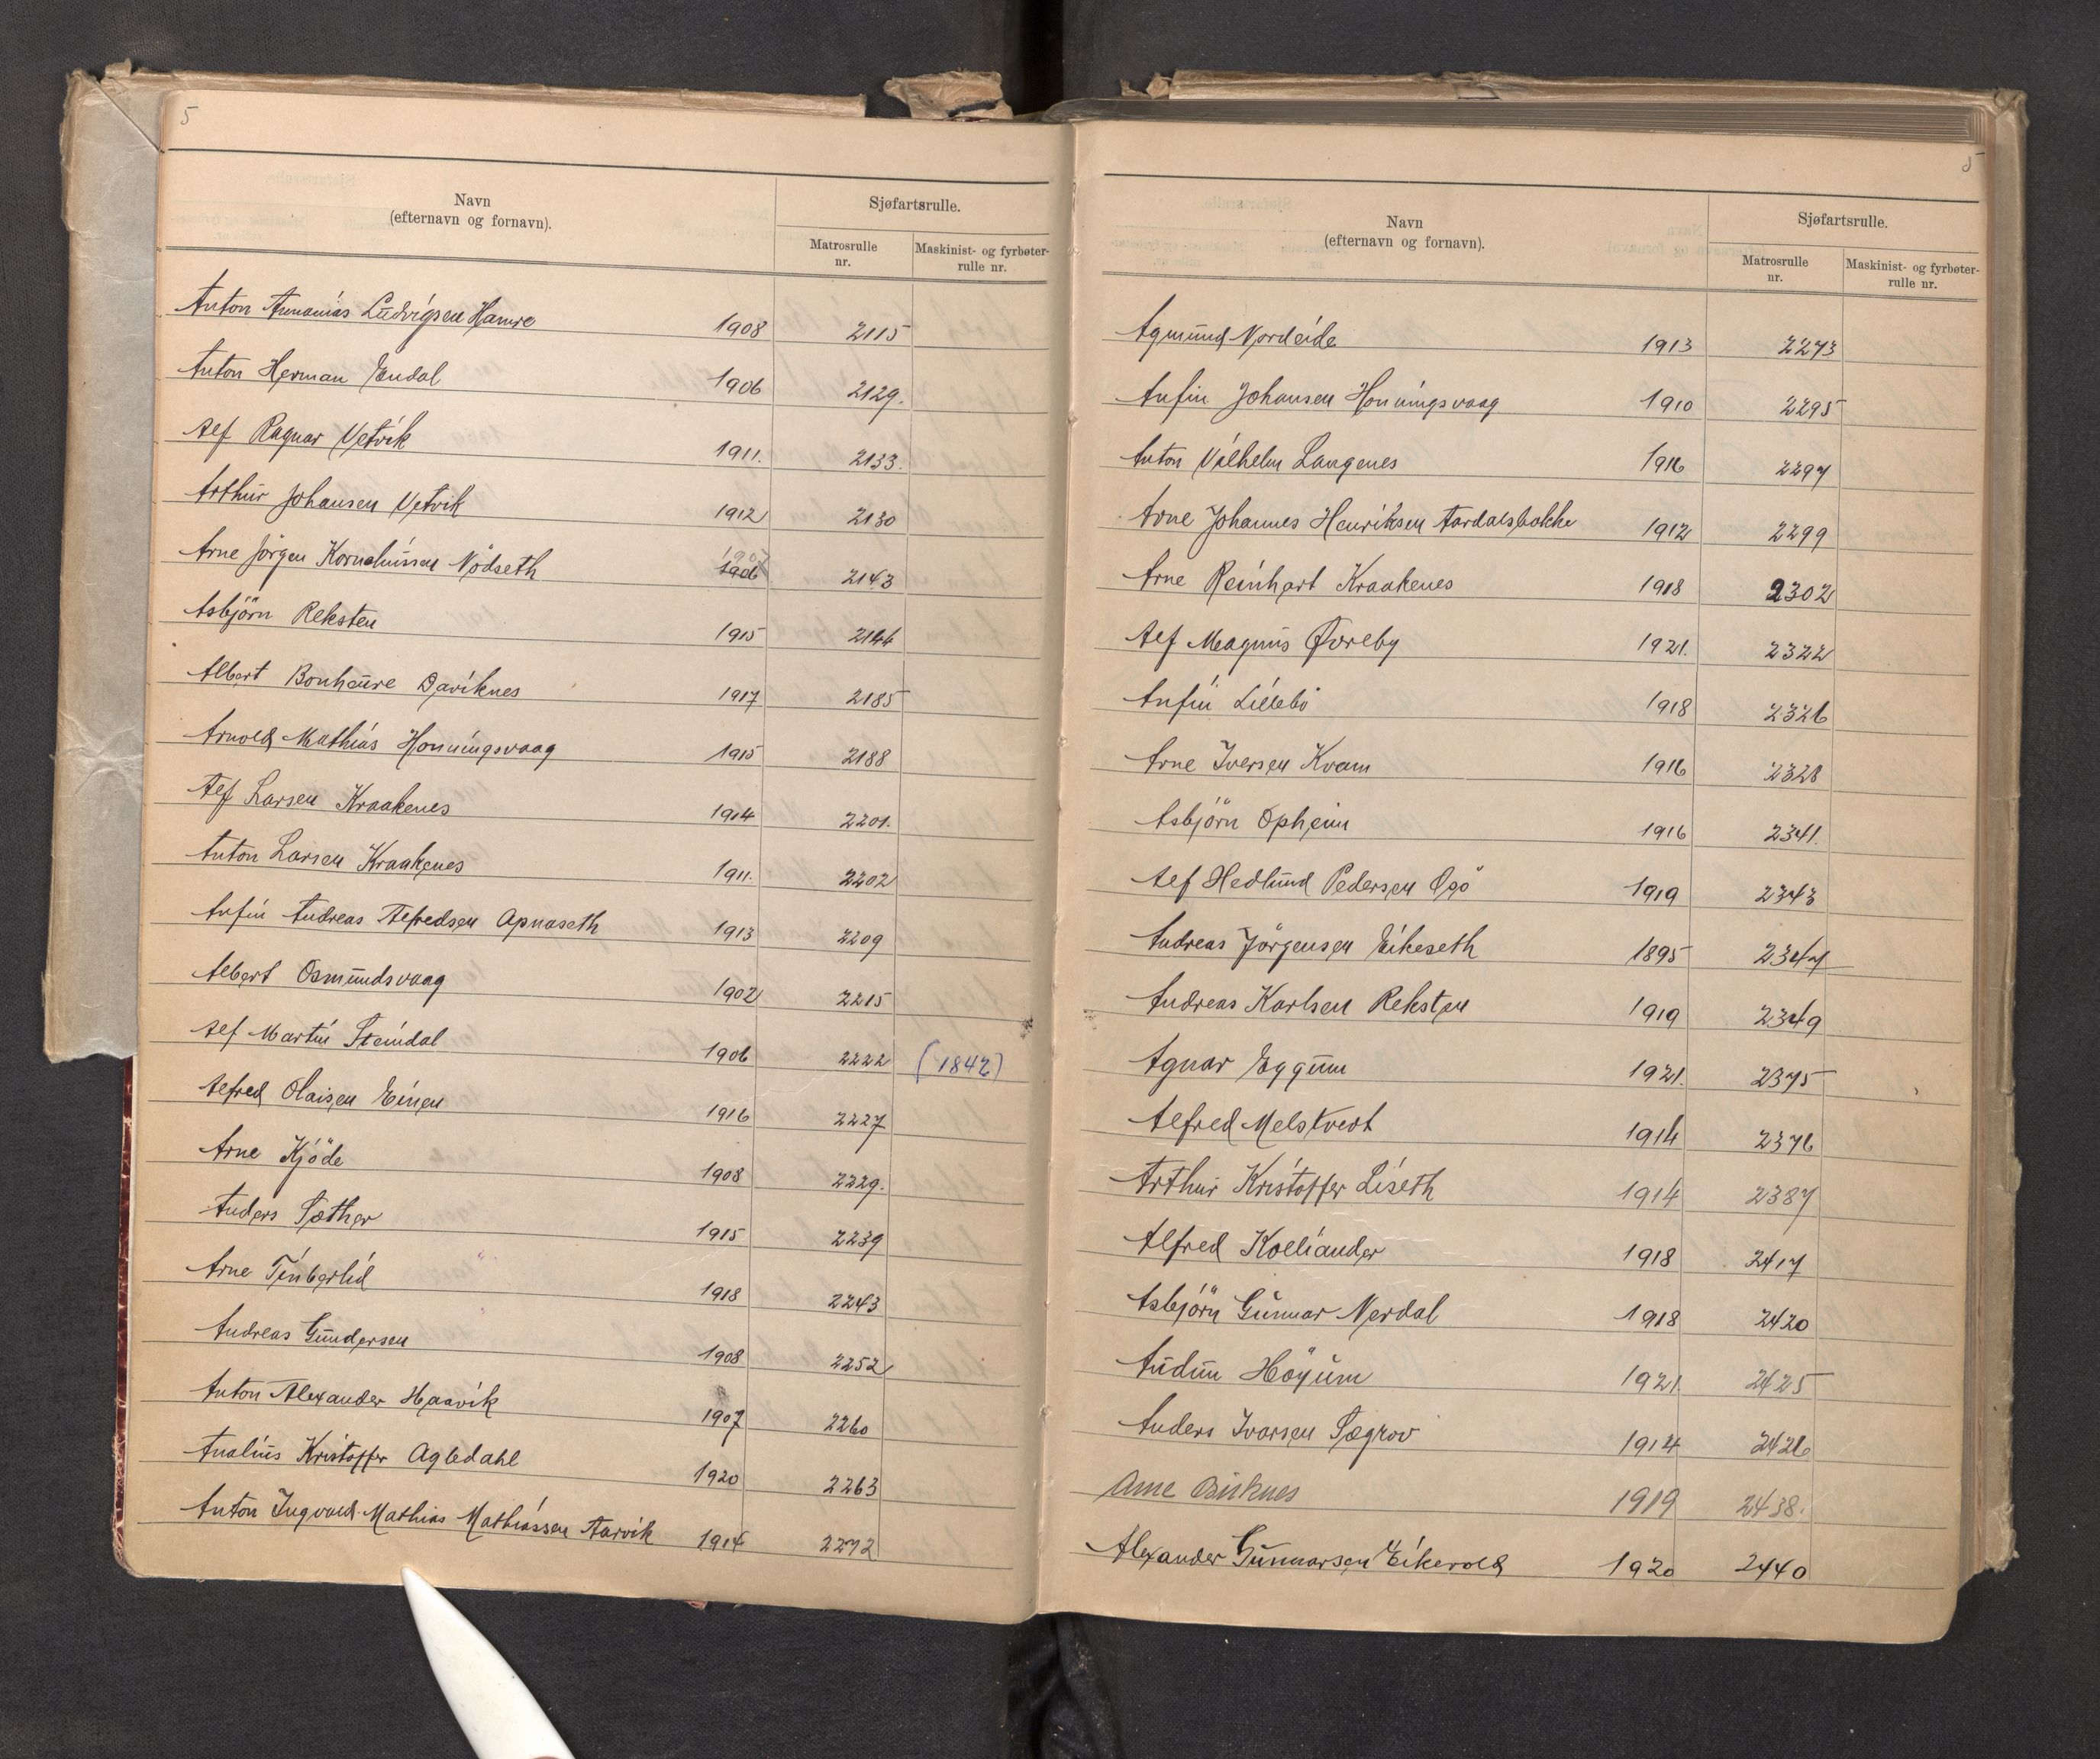 5
Navn
(efternavn og fornavn).
Sjøfartsrulle.
Matrosrulle nr.
Maskinist- og fyrbøter- rulle nr.
Anton Annanias Ludvigsen Hamre 1908 2115
Anton Herman Endal 1906 2129.
Alf Ragnar Vetvik 1911. 2133.
Arthur Johansen Vetvik 1912 2130
Arne Jörgen Korneliussen Nödseth 1907 1906 2143
Asbjörn Reksten 1915 2144
Albert Bonheure Daviknes 1917 2185
Arnold Mathias Honningsvaag 1915 2188
Alf Larsen Kraakenes 1914 2201.
Anton Larsen Kraakenes 1911. 2202
Anfin Andreas Alfredsen Apnaseth 1913 2209
Albert Osmundsvaag 1902 2215
Alf Martin Steindal 1906 2222 (1842)
Alfred Olaisen Einen 1916 2227
Arne Kjöde 1908 2229.
Anders Sæther 1915 2239
Arne Tinberlid 1918 2243
Andreas Gundersen 1908 2252
Anton Alexander Haavik 1907 2260
Analius Kristoffer Agledahl 1920 2263
Anton Ingvald Mathias Mathiassen Aarvik 1914 2272
5
Navn
(efternavn og fornavn).
Sjøfartsrulle.
Matrosrulle nr.
Maskinist- og fyrbøter- rulle nr.
Agmund Nordeide 1913 2273
Anfin Johansen Honningsvaag 1910 2295
Anton Vilhelm Langenes 1916 2297
Arne Johannes Henriksen Aardalsbakke 1912 2299
Arne Reinhart Kraakenes 1918 2302
Alf Magnus Øvreby 1921. 2322
Anfin Lillebö 1918 2326
Arne Iversen Kvam 1916 2328
Asbjörn Opheim 1916 2341.
Alf Hedlund Pedersen Osö 1919 2343
Andreas Jörgensen Eikeseth 1895 2347
Andreas Karlsen Reksten 1919 2349
Agnar Eggum 1921. 2375
Alfred Melstveit 1914 2376
Arthur Kristoffer Liseth 1914 2387
Alfred Kolliander 1918 2417
Asbjörn Gunnar Nerdal 1918 2420
Audun Höyum 1921. 2425
Anders Ivarsen Sægrov 1914 2426
Arne Birknes 1919 2438.
Alexander Gunnarsen Eikevold 1920 2440